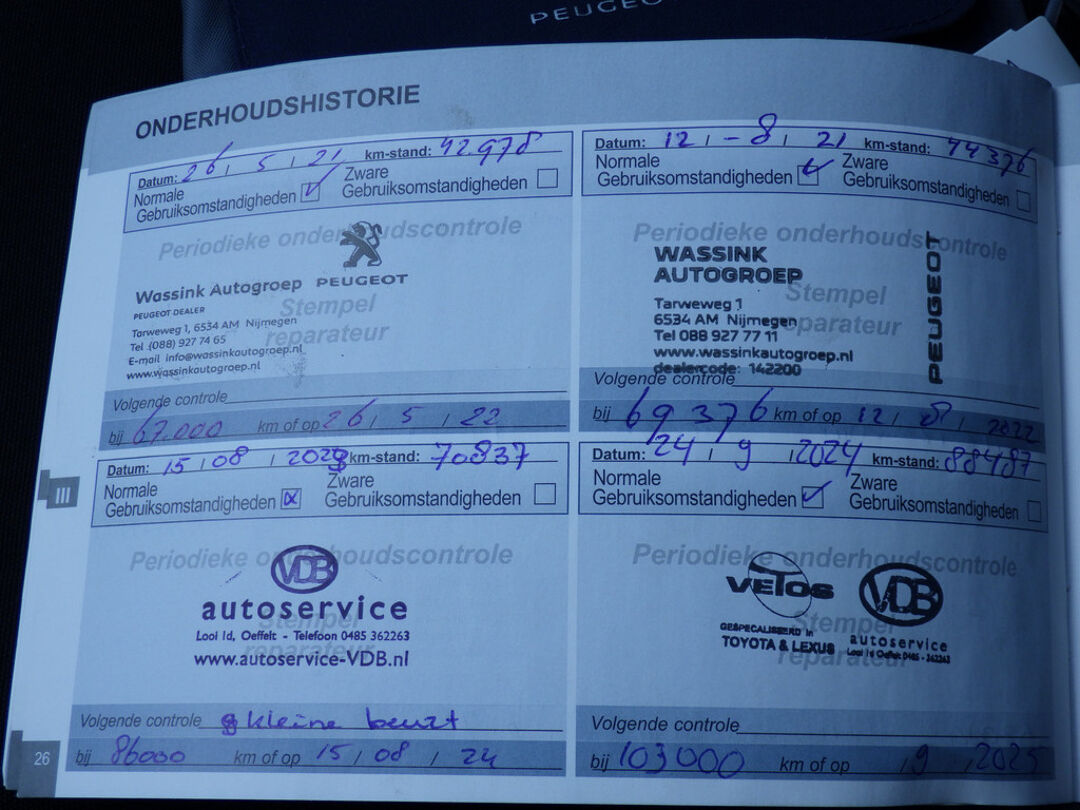 PEUGEO
ONDERHOUDSHISTORIE
Datum: 26 / 5 / 21 km-stand: 42.978
Normale
Gebruiksomstandigheden
Zware
Gebruiksomstandigheden
Periodieke onderhoudscontrole
Stempel
reparateur
Wassink Autogroep PEUGEOT
PEUGEOT DEALER
Tarweweg 1, 6534 AM Nijmegen
Tel (088) 927 74 65
E-mail info@wassinkautogroep.nl
www.wassinkautogroep.nl
Volgende controle
bij 67.000 km of op 26 / 5 / 22
Datum: 12 / - 8 / 21 km-stand: 44376
Normale
Gebruiksomstandigheden
Zware
Gebruiksomstandigheden
Periodieke onderhoudscontrole
Stempel
reparateur
WASSINK
AUTOGROEP
PEUGEOT
Tarweweg 1
6534 AM Nijmegen
Tel 088 927 77 11
www.wassinkautogroep.nl
dealercode: 142200
Volgende controle
bij 69376 km of op 12 / 8 / 2022
Datum: 15 / 08 / 2023 km-stand: 70837
Normale
Gebruiksomstandigheden
Zware
Gebruiksomstandigheden
Periodieke onderhoudscontrole
Stempel
reparateur
VDB
autoservice
Looi 1d, Oeffelt - Telefoon 0485 362263
www.autoservice-VDB.nl
Volgende controle kleine beurt
bij 86000 km of op 15 / 08 / 24
Datum: 24 / 9 / 2024 km-stand: 88487
Normale
Gebruiksomstandigheden
Zware
Gebruiksomstandigheden
Periodieke onderhoudscontrole
Stempel
reparateur
VETOS
GESPECIALISEERD in
TOYOTA & LEXUS
VDB
autoservice
Looi 1d Oeffelt 0485 - 362263
Volgende controle
bij 103000 km of op / 9 / 2025
III
26